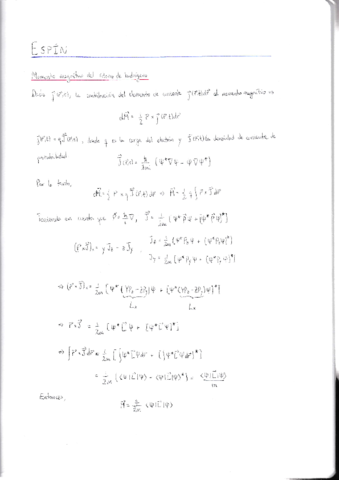 ESPÍN
Momento magnético del átomo de hidrógeno
Dada j(r,t), la contribución del elemento de corriente j(r,t)dr al momento magnético es
dM = 1/2 r × j(r,t)dr
j(r,t) = q J(r,t), donde q es la carga del electrón y J(r,t) la densidad de corriente de
probabilidad
J(r,t) = (ψ*∇ψ - ψ∇ψ*)
Por lo tanto,
dM = 1/2 r × q J(r,t)dr ⇒ M = 1/2 q ∫ r × J dr
Teniendo en cuenta que P = ħ/i ∇, J = 1/2m [ψ* P ψ + (ψ* P ψ)*]
(r × J)x = y Jz - z Jy
Jz = 1/2m [ψ* Pz ψ + (ψ* Pz ψ)*]
Jy = 1/2m [ψ* Py ψ + (ψ* Py ψ)*]
⇒ (r × J)x = 1/2m [ψ* (YPz - ZPy) ψ + (ψ* (YPz - ZPy) ψ)*]
Lx Lx
⇒ r × J = 1/2m [ψ* L ψ + (ψ* L ψ)*]
⇒ ∫ r × J dr = 1/2m [∫ ψ* L ψ dr + (∫ ψ* L ψ dr)*]
= 1/2m [⟨ψ|L|ψ⟩ + ⟨ψ|L|ψ⟩*] = ⟨ψ|L|ψ⟩/m
Entonces,
M = q/2m ⟨ψ|L|ψ⟩